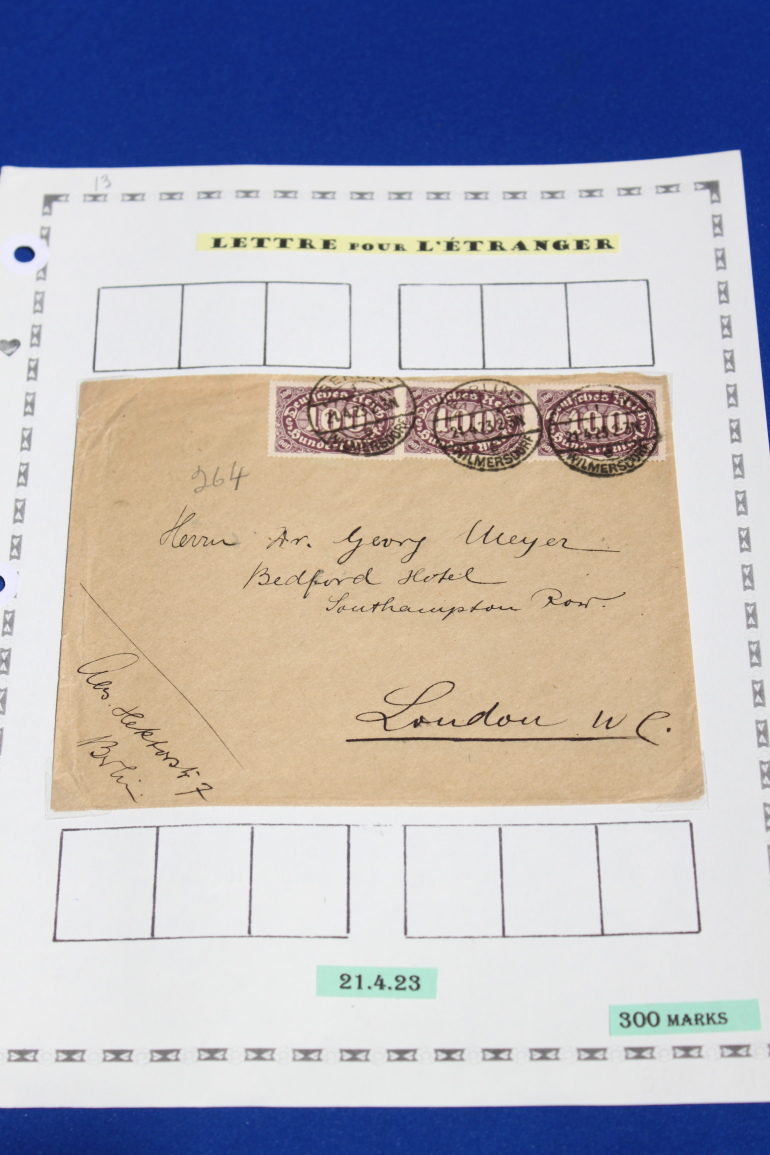 13
LETTRE POUR L'ÉTRANGER
Deutsches Reich Deutsches Reich Deutsches Reich
100 100 100
WILMERSDORF WILMERSDORF WILMERSDORF
264
Herrn Dr. Georg Meyer
Bedford Hotel
Southampton Row.
London W C.
Abs. Hektorstr 7
Berlin
21.4.23
300 MARKS